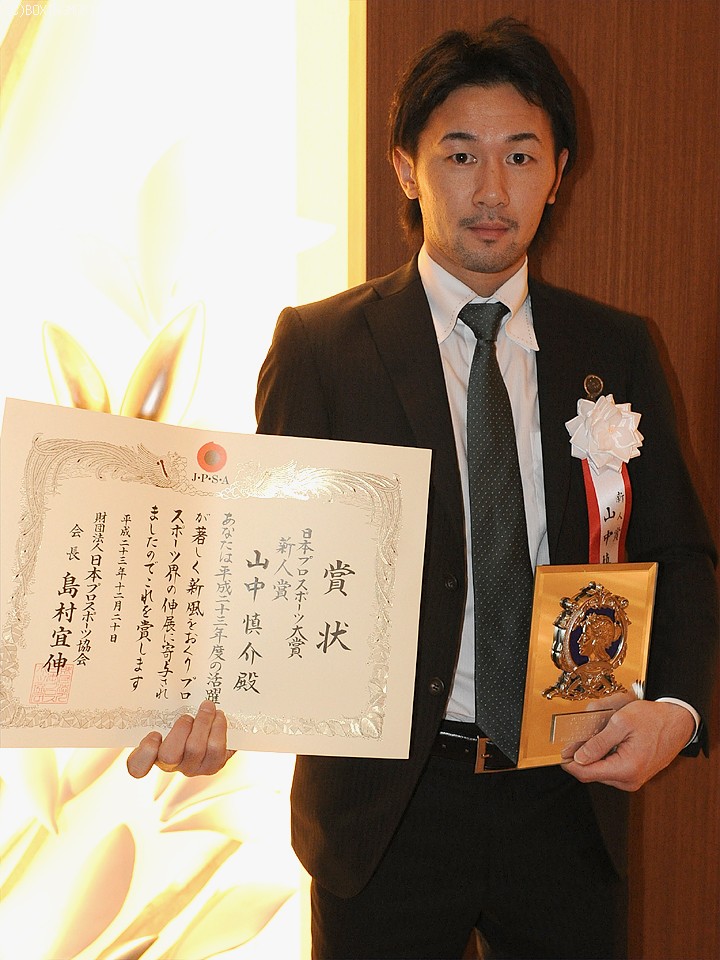 J·P·S·A
賞状
日本プロスポーツ大賞
新人賞
山中慎介殿
あなたは平成二十三年度の活躍
が著しく新風をおくりプロ
スポーツ界の伸展に寄与され
ましたのでこれを賞します
平成二十三年十二月二十日
財団法人日本プロスポーツ協会
会長 島村宜伸
新人賞
山中慎